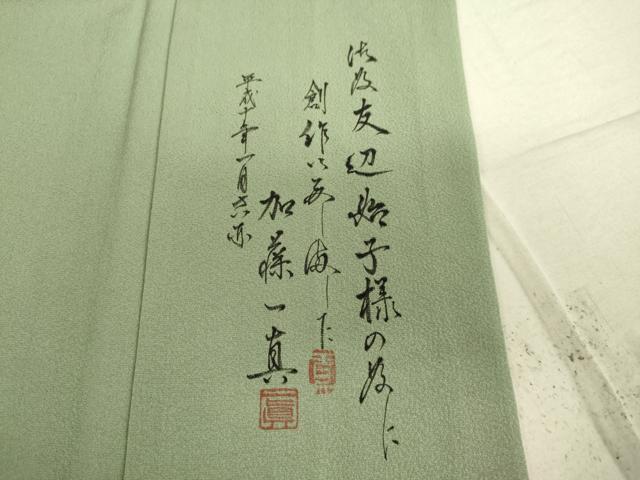 友辺始子様の為に
創作いたしました
平成十年一月吉日
加藤一真